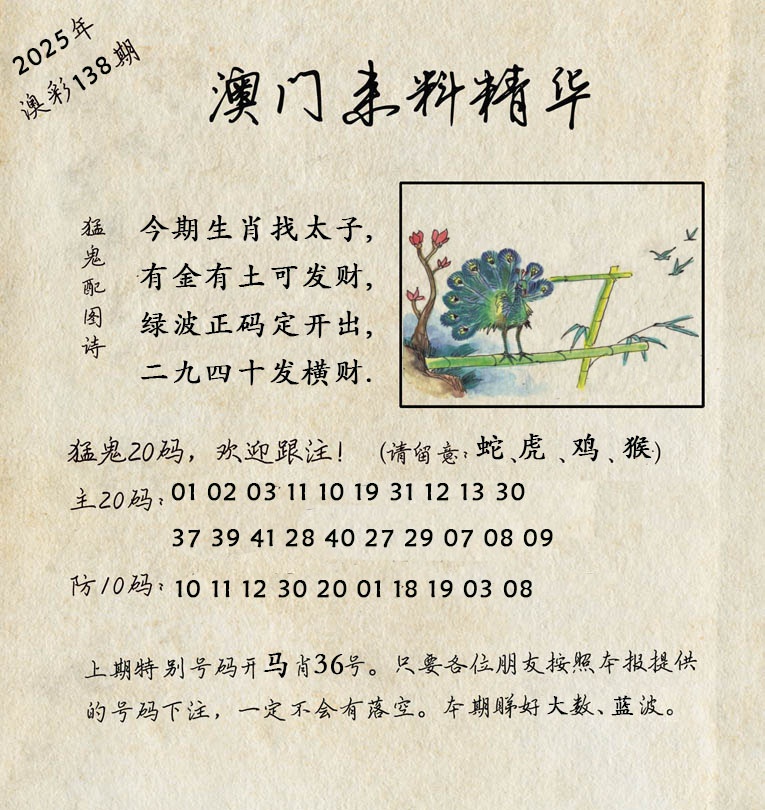 2025年
澳彩138期
澳门来料精华
猛鬼配图诗
今期生肖找太子,
有金有土可发财,
绿波正码定开出,
二九四十发横财.
猛鬼20码，欢迎跟注！（请留意：蛇、虎、鸡、猴）
主20码：01 02 03 11 10 19 31 12 13 30
37 39 41 28 40 27 29 07 08 09
防10码：10 11 12 30 20 01 18 19 03 08
上期特别号码开马肖36号。只要各位朋友按照本报提供
的号码下注，一定不会有落空。本期睇好大数、蓝波。